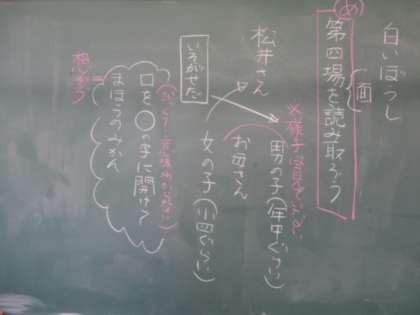 白いぼうし
め
第四場を読み取ろう
面
※様子は見ていない
男の子(年中ぐらい)
お母さん
女の子(小四ぐらい)
松井さん
いそがせた
口を〇の字に開けて
まほうのみかん
想ぞう